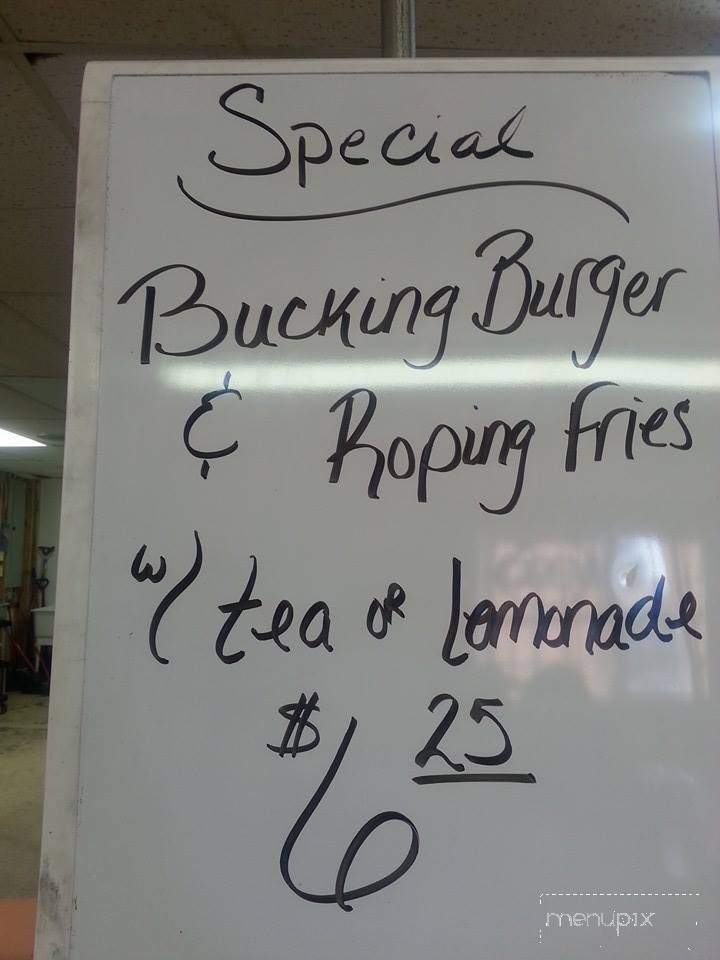 Special
Bucking Burger
& Roping Fries
w/ tea or Lemonade
$6 25
menupix